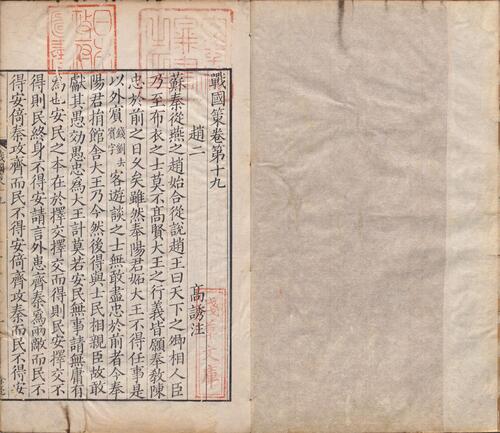 戰國策卷第十九
趙二　高誘注
蘇秦從燕之趙始合從說趙王曰天下之卿相人臣
乃至布衣之士莫不髙賢大王之行義皆願奉教陳
忠於前之日久矣雖然奉陽君妬大王不得任事是
以外賔錢劉去賔字客遊談之士無敢盡忠於前者今奉
陽君捐館舍大王乃今然後得與士民相親臣故敢
獻其愚効愚忠爲大王計莫若安民無事請無庸有
爲也安民之本在於擇交擇交而得則民安擇交不
得則民終身不得安請言外患齊秦爲兩敵而民不
得安倚秦攻齊而民不得安倚齊攻秦而民不得安